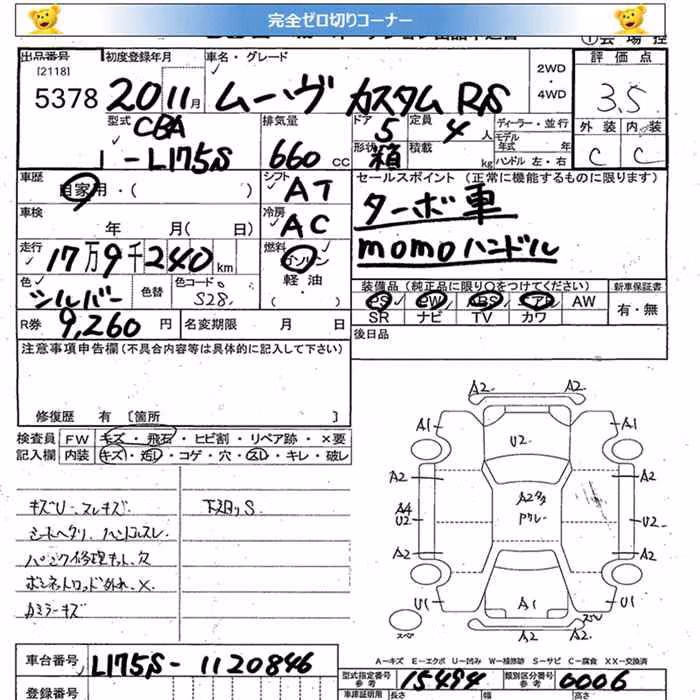 完全ゼロ切りコーナー
出品番号 初度登録年月 車名・グレード 評価点
[2118]
5378 2011月 ムーヴ カスタム RS 2WD・4WD 3.5
型式 CBA 排気量 ドア 5 定員 4人 ディーラー・並行 外装 内装
L175S 660cc 形状 箱 積載 kg モデル年式 年 ハンドル 左・右 C C
車歴 自家用・( ) シフト AT セールスポイント (正常に機能するものに限ります)
車検 年 月( 日) 冷房 AC ターボ車
走行 17万9千240km 燃料 ガソリン 軽油 ( ) momoハンドル
色 シルバー 色替 色コード S28 装備品 (純正品に限り○をつけてください) 新車保証書
PS PW ABS エアB AW 有・無
R券 9,260円 名変期限 月 日 SR ナビ TV カワ
注意事項申告欄(不具合内容等は具体的に記入して下さい) 後日品
修復歴 有 [箇所 ]
検査員 FW キズ・飛石・ヒビ割・リペア跡・×要
記入欄 内装 キズ・汚レ・コゲ・穴・スレ・キレ・破レ
キズU・スレキズ 下スリS
シートヘタリ、ハンドルスレ
パンク修理キット、欠
ボンネットロッド外れ、×
カミラーキズ
A2 A2
A1 A1
U2
A2 A2
A2
A4 U2 U2
アクレ
A2 A2
U1 A1 U1
スペア A2 スレ
A-キズ E-エクボ U-凹み W-補修跡 S-サビ C-腐食 XX-交換済
車台番号 L175S-1120846 型式指定番号 参考 15494 類別区分番号 参考 0006
登録番号 車庫証明用 長さ 幅 高さ